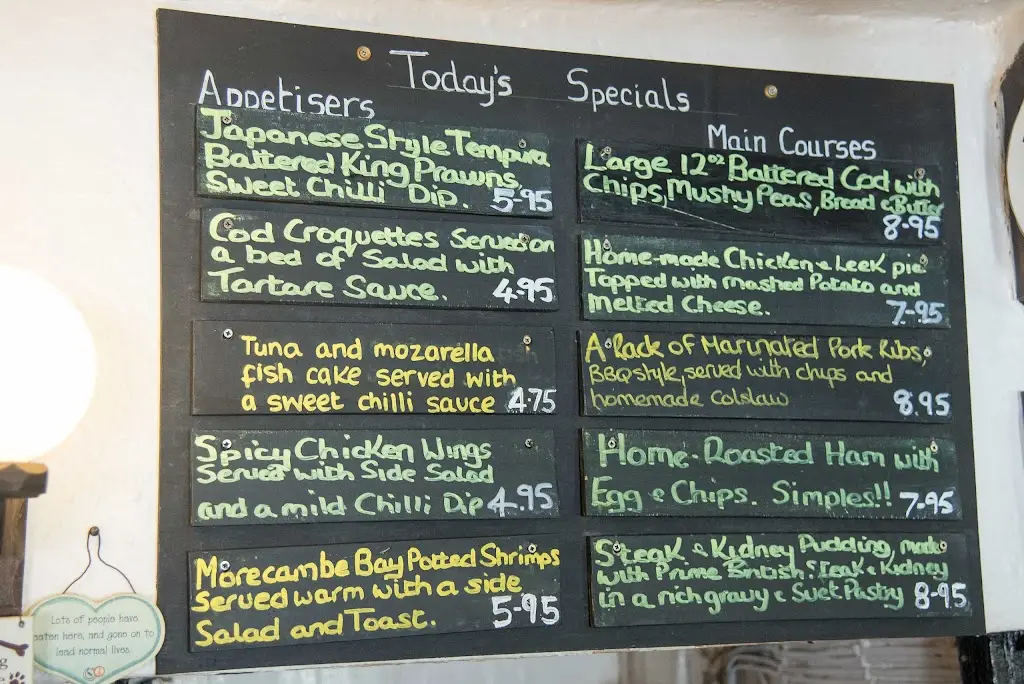 Today's Specials
Appetisers
Japanese Style Tempura
Battered King Prawns,
Sweet Chilli Dip. 5-95
Cod Croquettes Served on
a bed of Salad with
Tartare Sauce. 4.95
Tuna and mozarella
fish cake served with
a sweet chilli sauce 4.75
Spicy Chicken Wings
Served with Side Salad
and a mild Chilli Dip 4.95
Morecambe Bay Potted Shrimps
served warm with a side
Salad and Toast. 5-95
Main Courses
Large 12oz Battered Cod with
Chips, Mushy Peas, Bread & Butter
8-95
Home-made Chicken & Leek pie
Topped with mashed Potato and
Melted Cheese. 7-95
A Rack of Marinated Pork Ribs,
BBQ style, served with chips and
homemade Colslaw 8.95
Home-Roasted Ham with
Egg & Chips. Simples!! 7-95
Steak & Kidney Pudding, made
with Prime British Steak & Kidney
in a rich gravy & Suet Pastry 8-95
Lots of people have
eaten here, and gone on to
lead normal lives.